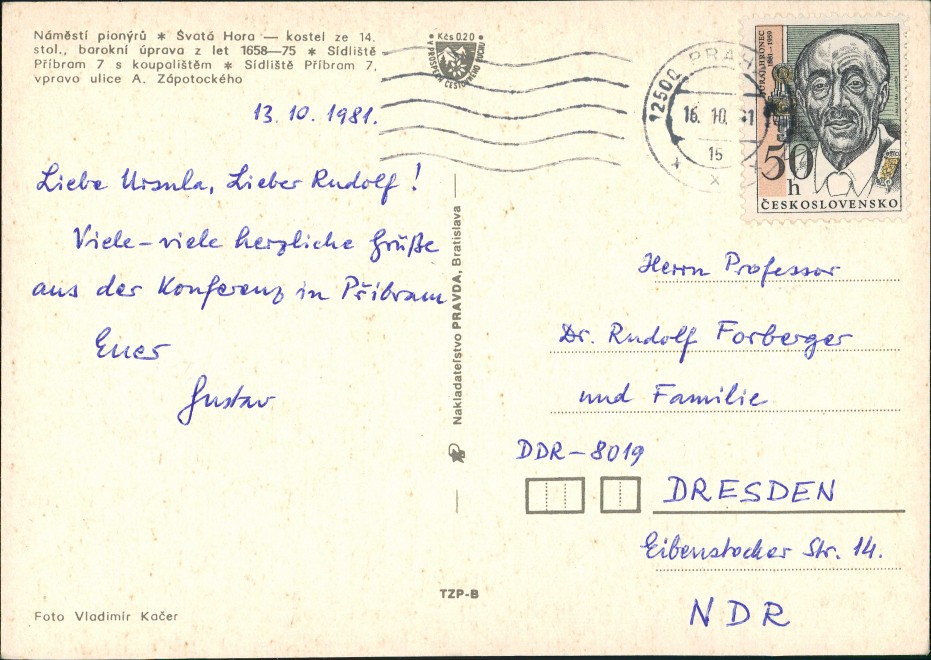 Náměstí pionýrů * Svatá Hora — kostel ze 14.
stol., barokní úprava z let 1658—75 * Sídliště
Příbram 7 s koupalištěm * Sídliště Příbram 7,
vpravo ulice A. Zápotockého
Kčs 0.20
CESTOVNÉHO RUCHU
12500 PRAHA
16. 10. 81
15
1881—1959
50
h
ČESKOSLOVENSKO
13. 10. 1981.
Liebe Ursula, Lieber Rudolf!
Viele-viele herzliche Grüße
aus der Konferenz in Příbram
Euer
Gustav
Nakladateľstvo PRAVDA, Bratislava
Herrn Professor
Dr. Rudolf Forberger
und Familie
DDR-8019
DRESDEN
Eibenstocker Str. 14.
NDR
TZP-B
Foto Vladimír Kačer